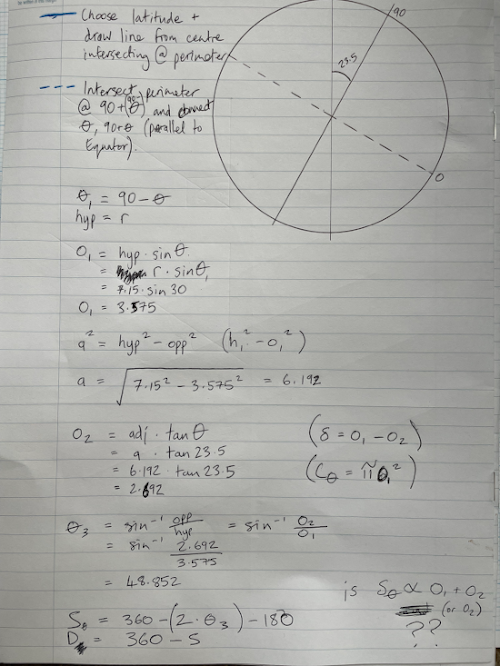 Choose latitude +
draw line from centre
intersecting @ perimeter
Intersect perimeter
@ 90+(90-θ) and connect
θ, 90+θ (parallel to
Equator).
90
23.5
0
θ₁ = 90 - θ
hyp = r
O₁ = hyp · sinθ
= r · sinθ₁
= 7.15 · sin 30
O₁ = 3.575
a² = hyp² - opp² (h₁² - O₁²)
a = √7.15² - 3.575² = 6.192
O₂ = adj · tanθ
= a · tan 23.5
= 6.192 · tan 23.5
= 2.692
(δ = O₁ - O₂)
(Cθ = π O₁²)
θ₃ = sin⁻¹ opp/hyp = sin⁻¹ O₂/O₁
= sin⁻¹ 2.692/3.575
= 48.852
Sθ = 360 - (2 · θ₃) - 180
D = 360 - S
is Sθ ∝ O₁ + O₂
(or O₂)
??